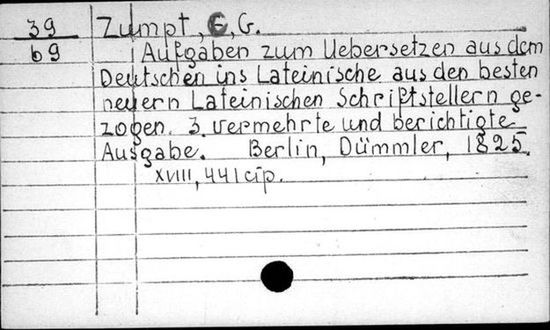 39 Zumpt, C, G.
69 Aufgaben zum Uebersetzen aus dem
Deutschen ins Lateinische aus den besten
neuern Lateinischen Schriftstellern ge-
zogen. 3. vermehrte und berichtigte
Ausgabe. Berlin, Dümmler, 1825.
XVIII, 441 с̄тр.